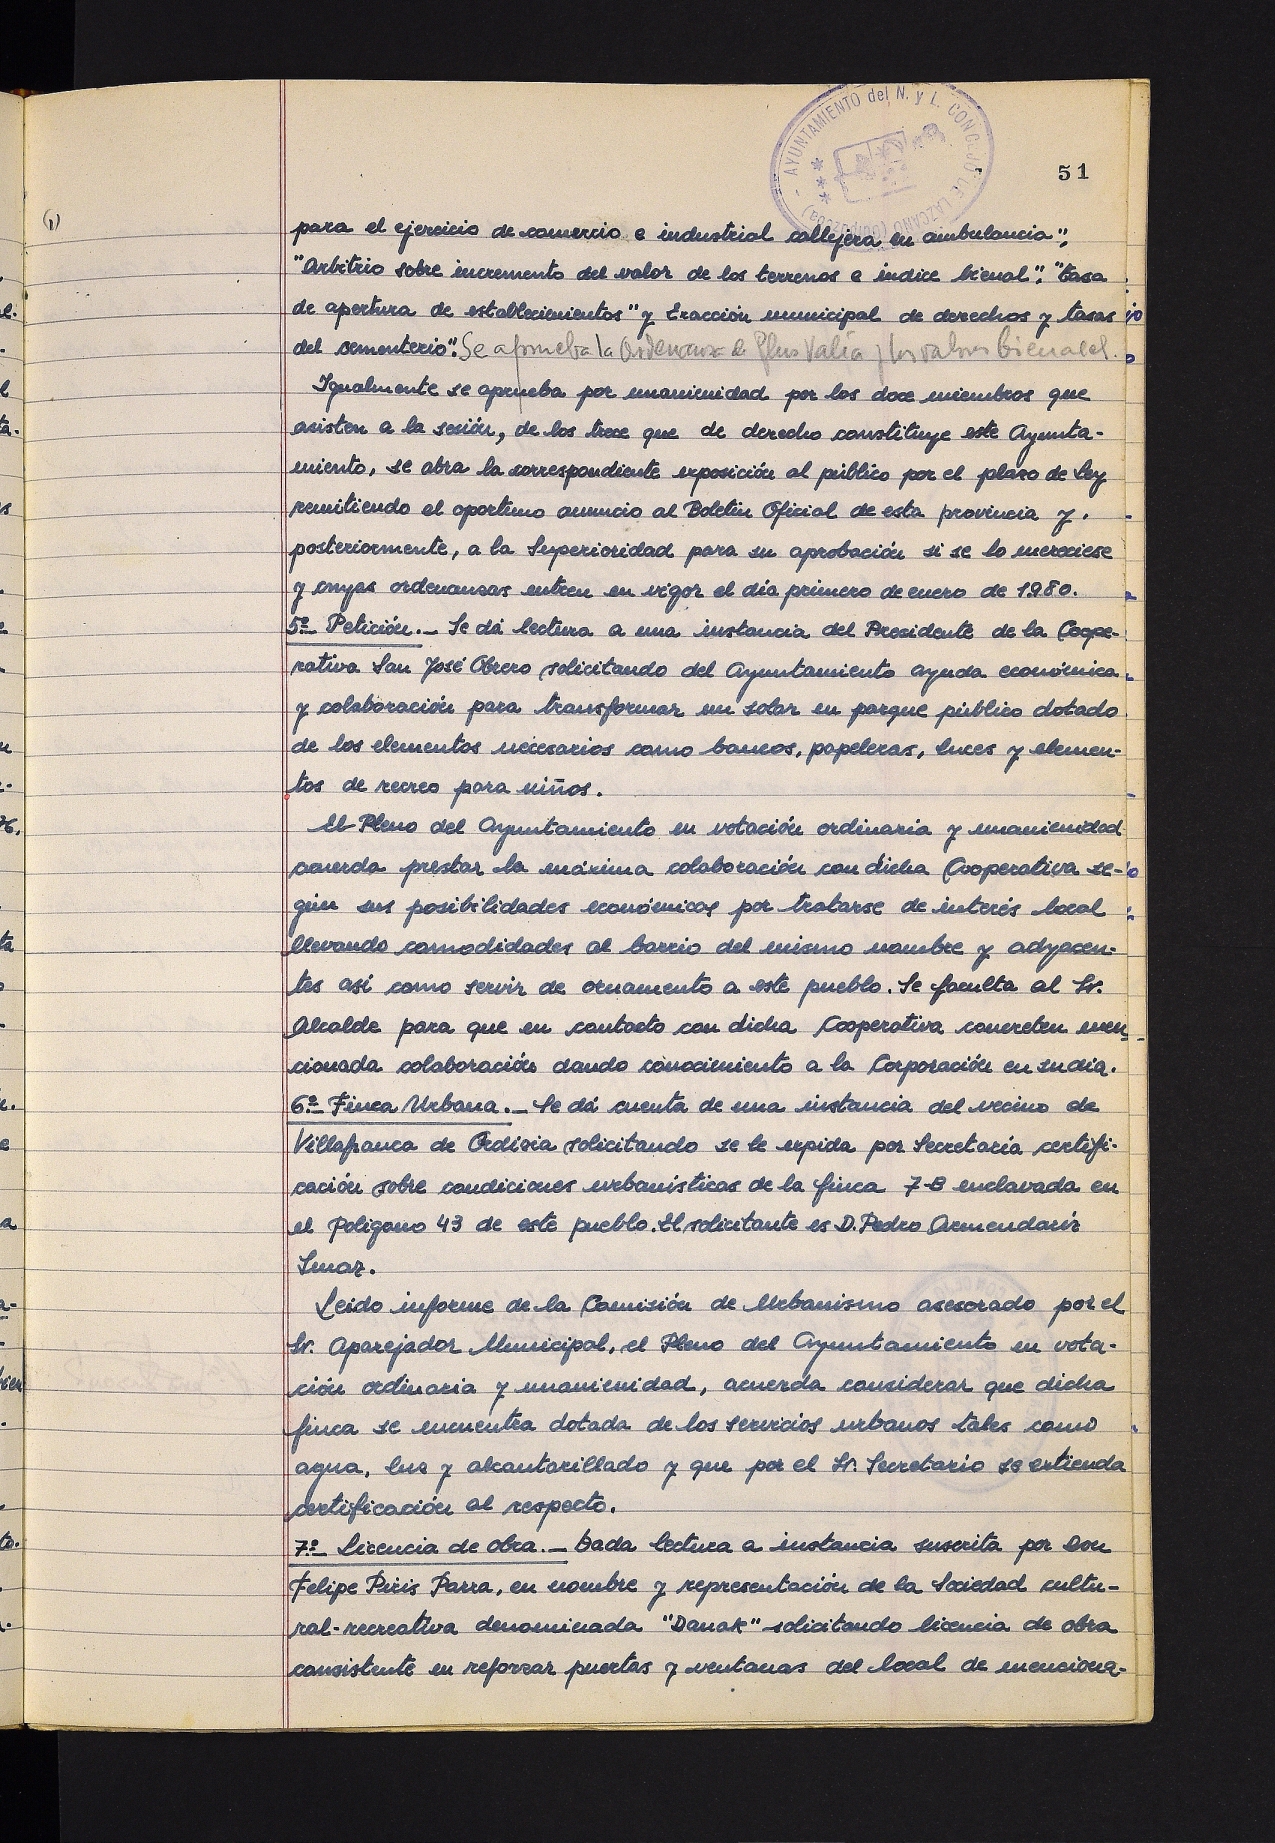 AYUNTAMIENTO del N. y L. CONCEJO DE LAZCANO (Guipúzcoa)
51
(1)
para el ejercicio de comercio e industrial callejera en ambulancia",
"Arbitrio sobre incremento del valor de los terrenos e índice bienal", "Tasa
de apertura de establecimientos" y Exacción municipal de derechos y tasas
del cementerio". Se aprueba la Ordenanza de Plus Valía y los valores bienales.
Igualmente se aprueba por unanimidad por los doce miembros que
asisten a la sesión, de los trece que de derecho constituye este Ayunta-
miento, se abra la correspondiente exposición al público por el plazo de Ley
remitiendo el oportuno anuncio al Boletín Oficial de esta provincia y,
posteriormente, a la Superioridad para su aprobación si se lo mereciese
y cuyas ordenanzas entren en vigor el día primero de enero de 1980.
5º Petición.- Se dá lectura a una instancia del Presidente de la Coope-
rativa San José Obrero solicitando del Ayuntamiento ayuda económica
y colaboración para transformar un solar en parque público dotado
de los elementos necesarios como bancos, papeleras, luces y elemen-
tos de recreo para niños.
El Pleno del Ayuntamiento en votación ordinaria y unanimidad
acuerda prestar la máxima colaboración con dicha Cooperativa se-
gún sus posibilidades económicas por tratarse de interés local
llevando comodidades al barrio del mismo nombre y adyacen-
tes así como servir de ornamento a este pueblo. Se faculta al Sr.
Alcalde para que en contacto con dicha Cooperativa concreten men-
cionada colaboración dando conocimiento a la Corporación en su día.
6º Finca Urbana.- Se dá cuenta de una instancia del vecino de
Villafranca de Ordizia solicitando se le expida por Secretaría certifi-
cación sobre condiciones urbanísticas de la finca 7-B enclavada en
el Polígono 43 de este pueblo. El solicitante es D. Pedro Armendariz
Imaz.
Leido informe de la Comisión de Urbanismo asesorado por el
Sr. Aparejador Municipal, el Pleno del Ayuntamiento en vota-
ción ordinaria y unanimidad, acuerda considerar que dicha
finca se encuentra dotada de los servicios urbanos tales como
agua, luz y alcantarillado y que por el Sr. Secretario se extienda
certificación al respecto.
7º Licencia de obra.- Dada lectura a instancia suscrita por Don
Felipe Piris Parra, en nombre y representación de la Sociedad cultu-
ral-recreativa denominada "Danak" solicitando licencia de obra
consistente en reforzar puertas y ventanas del local de menciona-